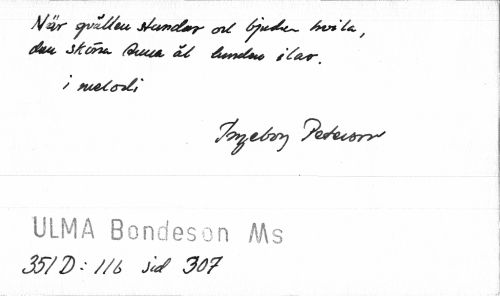 När qvällen stundar och bjuder hvila,
den sköna Anna åt lunden ilar.
i melodi
Ingeborg Peterson
ULMA Bondeson Ms
351D:116 sid 307